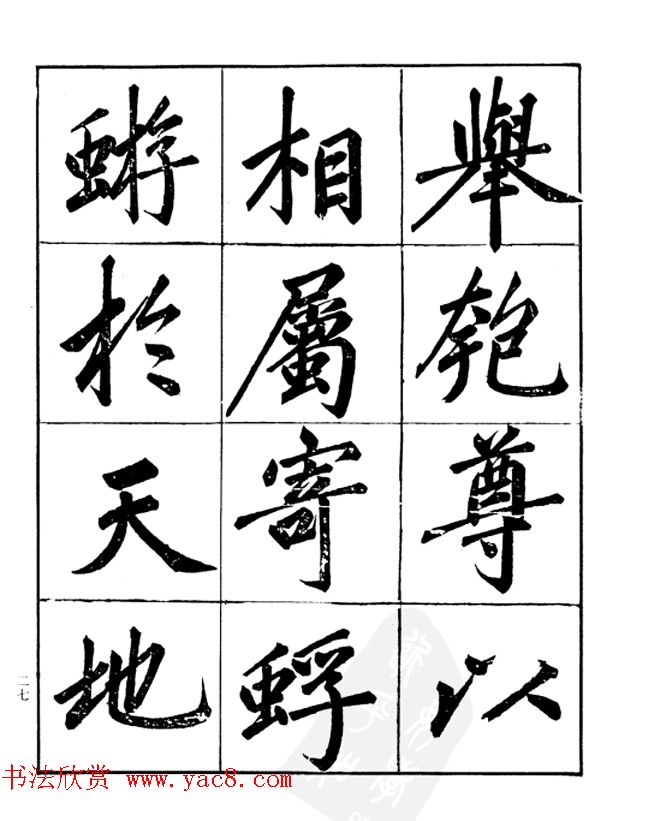 舉匏尊以
相屬寄蜉
蝣於天地
二七
书法欣赏 www.yac8.com